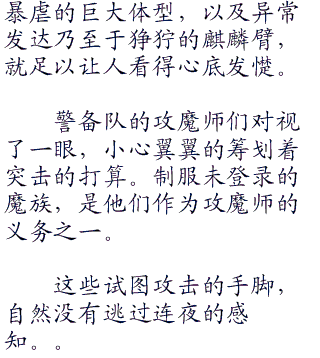 暴虐的巨大体型，以及异常
发达乃至于狰狞的麒麟臂，
就足以让人看得心底发憷。
警备队的攻魔师们对视
了一眼，小心翼翼的筹划着
突击的打算。制服未登录的
魔族，是他们作为攻魔师的
义务之一。
这些试图攻击的手脚，
自然没有逃过连夜的感
知。。